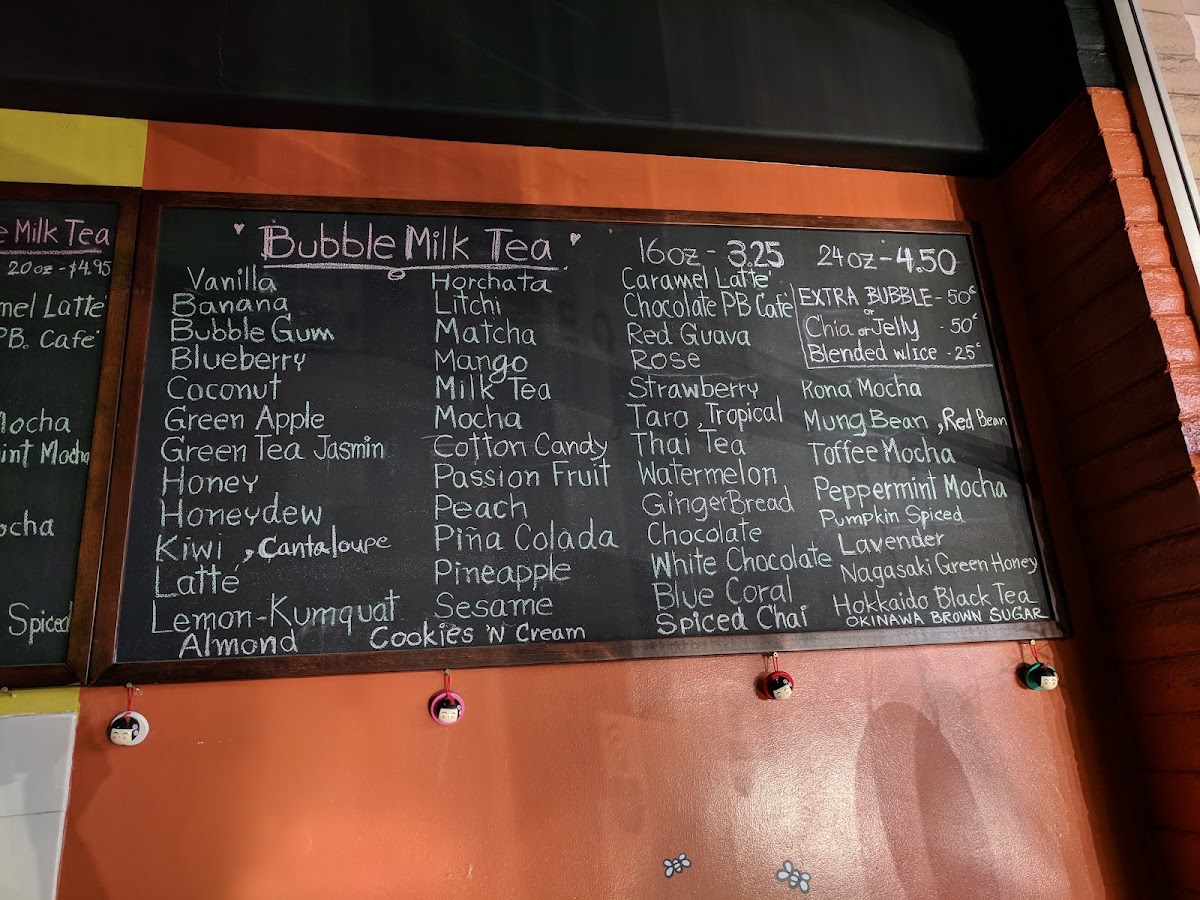 e Milk Tea
20oz - $4.95
mel Latte
PB. Café
Mocha
int Mocha
ocha
Spiced
Bubble Milk Tea
16oz - 3.25 24oz - 4.50
Vanilla
Banana
Bubble Gum
Blueberry
Coconut
Green Apple
Green Tea Jasmin
Honey
Honeydew
Kiwi , Cantaloupe
Latté
Lemon-Kumquat
Almond
Horchata
Litchi
Matcha
Mango
Milk Tea
Mocha
Cotton Candy
Passion Fruit
Peach
Piña Colada
Pineapple
Sesame
Cookies 'N Cream
Caramel Latte'
Chocolate PB Café
Red Guava
Rose
Strawberry
Taro , Tropical
Thai Tea
Watermelon
GingerBread
Chocolate
White Chocolate
Blue Coral
Spiced Chai
EXTRA BUBBLE - 50¢
or
Chia or Jelly - 50¢
Blended w/Ice - 25¢
Kona Mocha
Mung Bean , Red Bean
Toffee Mocha
Peppermint Mocha
Pumpkin Spiced
Lavender
Nagasaki Green Honey
Hokkaido Black Tea
OKINAWA BROWN SUGAR